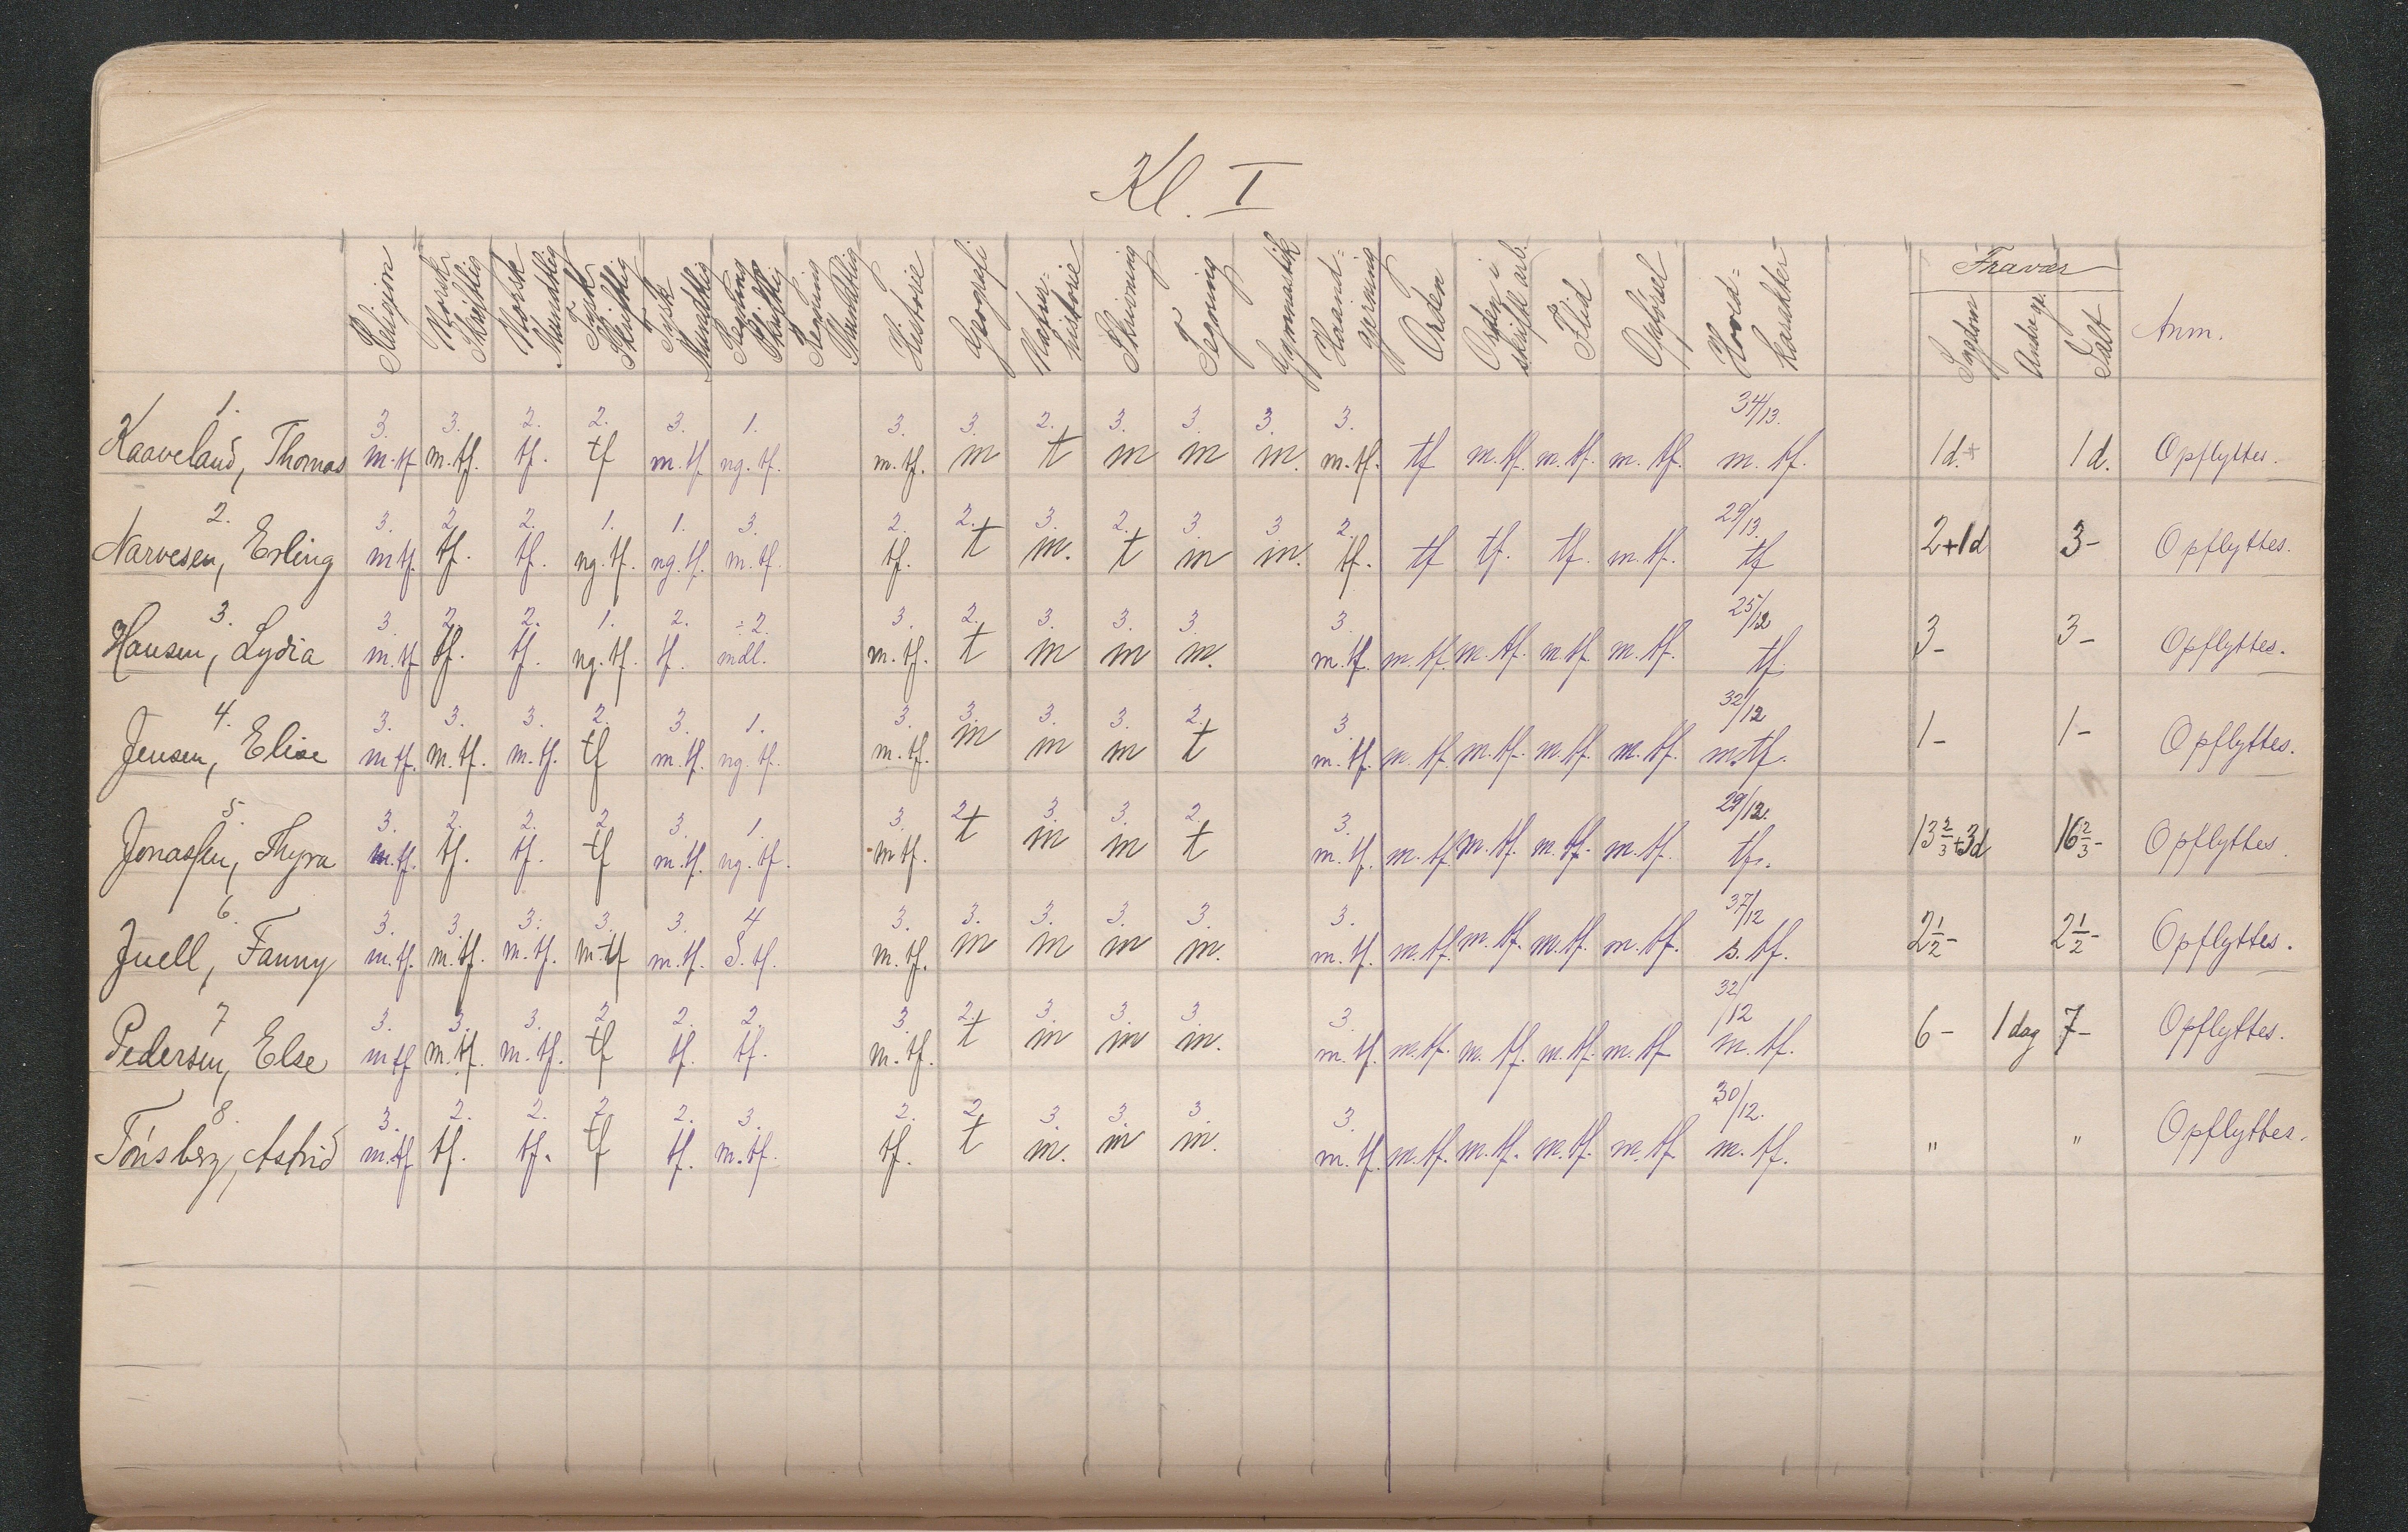 Kl. I
Religion | Norsk Skriftlig | Norsk Mundtlig | Tysk Skriftlig | Tysk Mundtlig | Regning Skriftlig | Regning Mundtlig | Historie | Geografi | Natur-historie | Skrivning | Tegning | Gymnastik | Haand-gjerning | Orden | Orden i skriftl. arb. | Flid | Opførsel | Hoved-karakter | Fravær | Sygdom | Ialt | Anm.
1. 3. 3. 2. 2. 3. 1. 3. 3. 2. 3. 3. 3. 3. 34/13.
Kaaveland, Thomas m.tf m.tf. tf. tf m.tf ng.tf. m.tf. m t m m m. m.tf. tf m.tf. m.tf. m.tf. m.tf. 1d. 1d. Opflyttes.
2. 3. 2. 2. 1. 1. 3. 2. 2. 3. 2. 3 3 2. 29/13.
Narvesen, Erling m.tf. tf. tf. ng.tf. ng.tf. m.tf. tf. t m. t m m. tf. tf tf. tf. m.tf. tf 2+1d 3- Opflyttes.
3. 3. 2. 2. 1. 2. ÷2. 3. 2. 3. 3. 3. 3. 25/12
Hansen, Lydia m.tf tf. tf. ng.tf. tf. mdl. m.tf. t m m m. m.tf. m.tf. m.tf. m.tf. m.tf. tf. 3- 3- Opflyttes.
4. 3. 3. 3. 2. 3. 1. 3. 3. 3. 3. 2. 3. 32/12
Jensen, Elise m.tf. m.tf. m.tf. tf m.tf. ng.tf. m.tf. m m m t m.tf. m.tf. m.tf. m.tf. m.tf. m.tf. 1- 1- Opflyttes.
5. 3. 2. 2. 2 3. 1. 3. 2. 3. 3. 2. 3. 29/12.
Jonassen, Thyra m.tf. tf. tf. tf m.tf. ng.tf. m.tf. t m m t m.tf. m.tf. m.tf. m.tf. m.tf. tf. 13 2/3+3d 16 2/3- Opflyttes.
6. 3. 3. 3. 3. 3. 4 3. 3. 3. 3. 3. 3. 37/12
Juell, Fanny m.tf. m.tf. m.tf. m.tf m.tf. S.tf. m.tf. m m m m. m.tf. m.tf. m.tf. m.tf. m.tf. s.tf. 2 1/2- 2 1/2- Opflyttes.
7 3. 3. 3. 2 2. 2. 3. 2. 3. 3. 3. 3. 32/12
Pedersen, Else m.tf m.tf. m.tf. tf tf. tf. m.tf. t m m m. m.tf. m.tf. m.tf. m.tf. m.tf m.tf. 6- 1 dag 7- Opflyttes.
8. 3. 2. 2. 2 2. 3. 2. 2. 3. 3. 3. 3. 30/12.
Tönsberg, Astrid m.tf tf. tf. tf tf. m.tf. tf. t m. m m. m.tf. m.tf. m.tf. m.tf. m.tf. m.tf. " " Opflyttes.